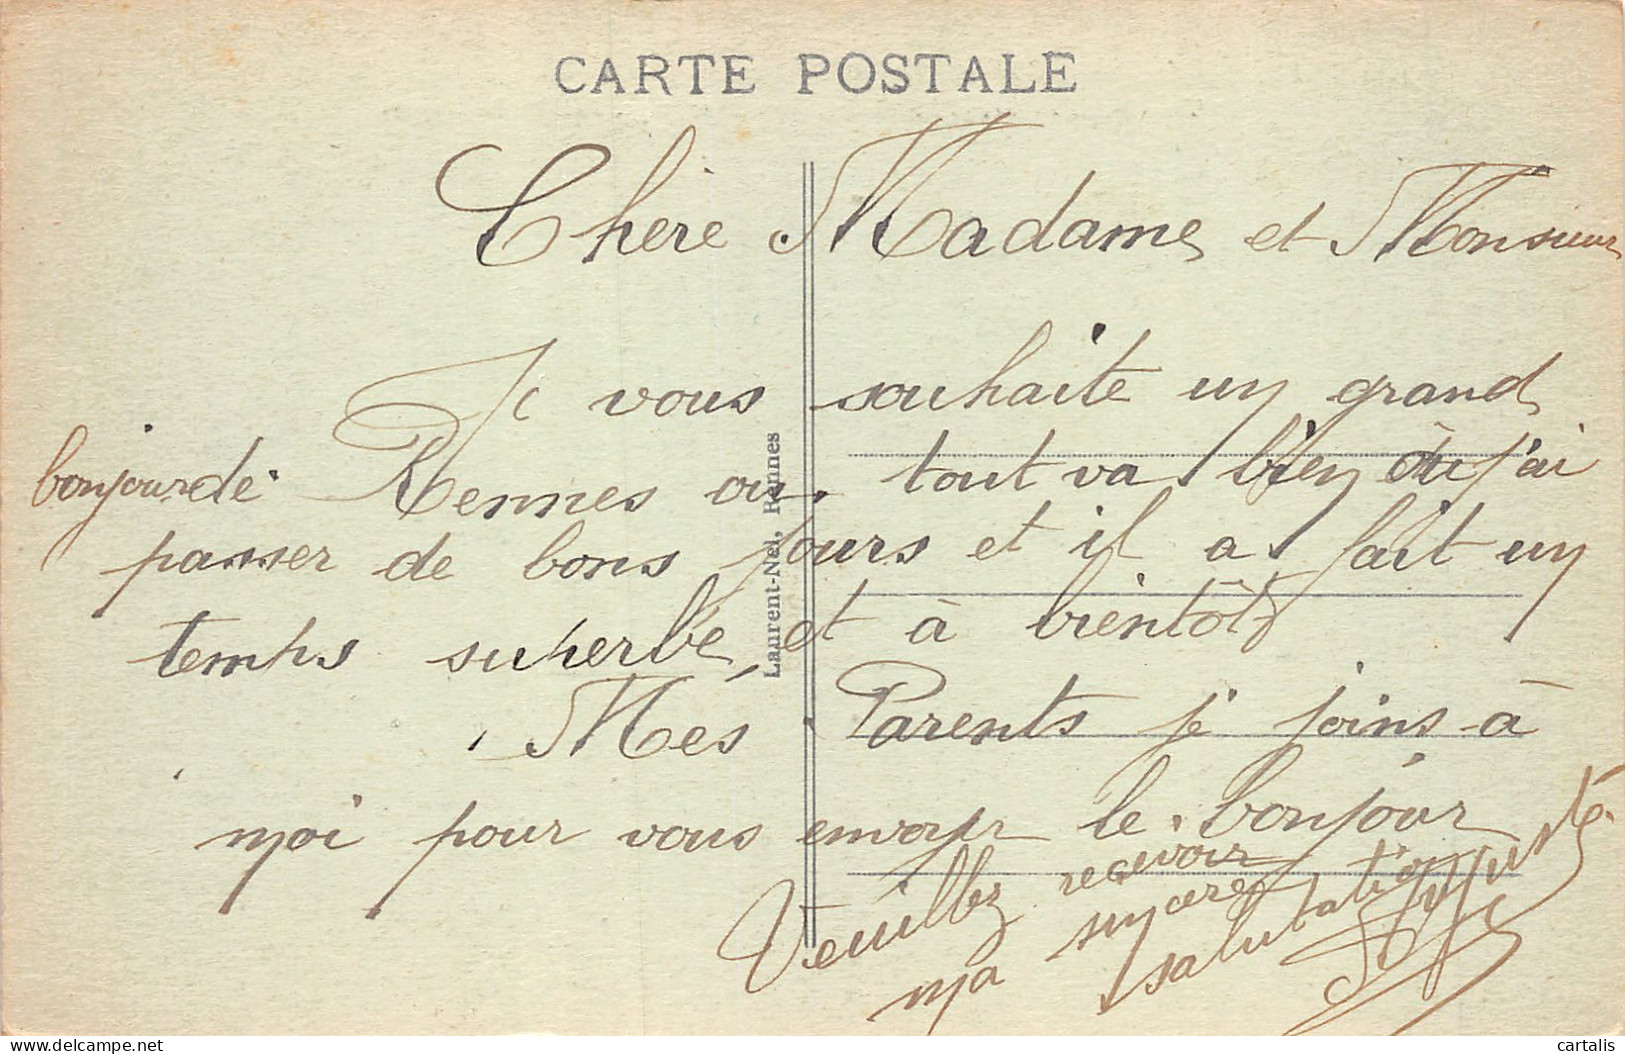 CARTE POSTALE
Chère Madame et Monsieur
Je vous souhaite un grand
bonjour de Rennes ou tout va bien ou j'ai
passer de bons jours et il a fait un
temps superbe, et à bientôt
Mes Parents je joins à
moi pour vous envoyr le bonjour
Veuillez recevoir
ma syncere
salutation
Auguste
Laurent-Nel, Rennes
cartalis